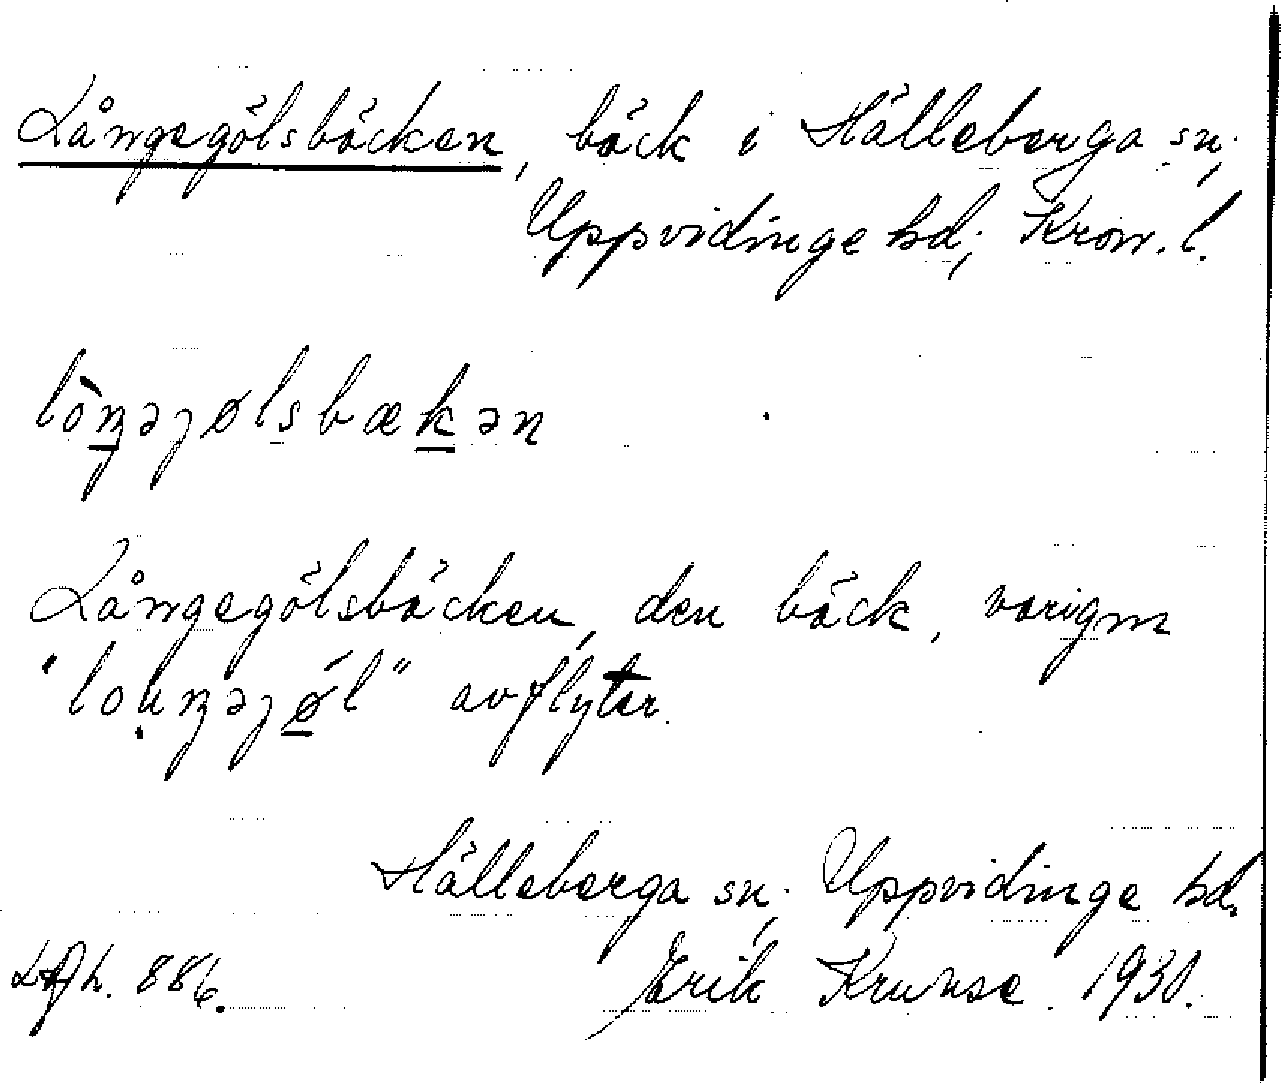 Långegölsbäcken, bäck i Hälleberga sn.,
Uppvidinge hd., Kron. l.
lòŋəȷølsbækən
Långegölsbäcken, den bäck, varigm
"louŋəȷøĺ" avflyter.
Hälleberga sn., Uppvidinge hd.
886. Erik Krunse. 1930.